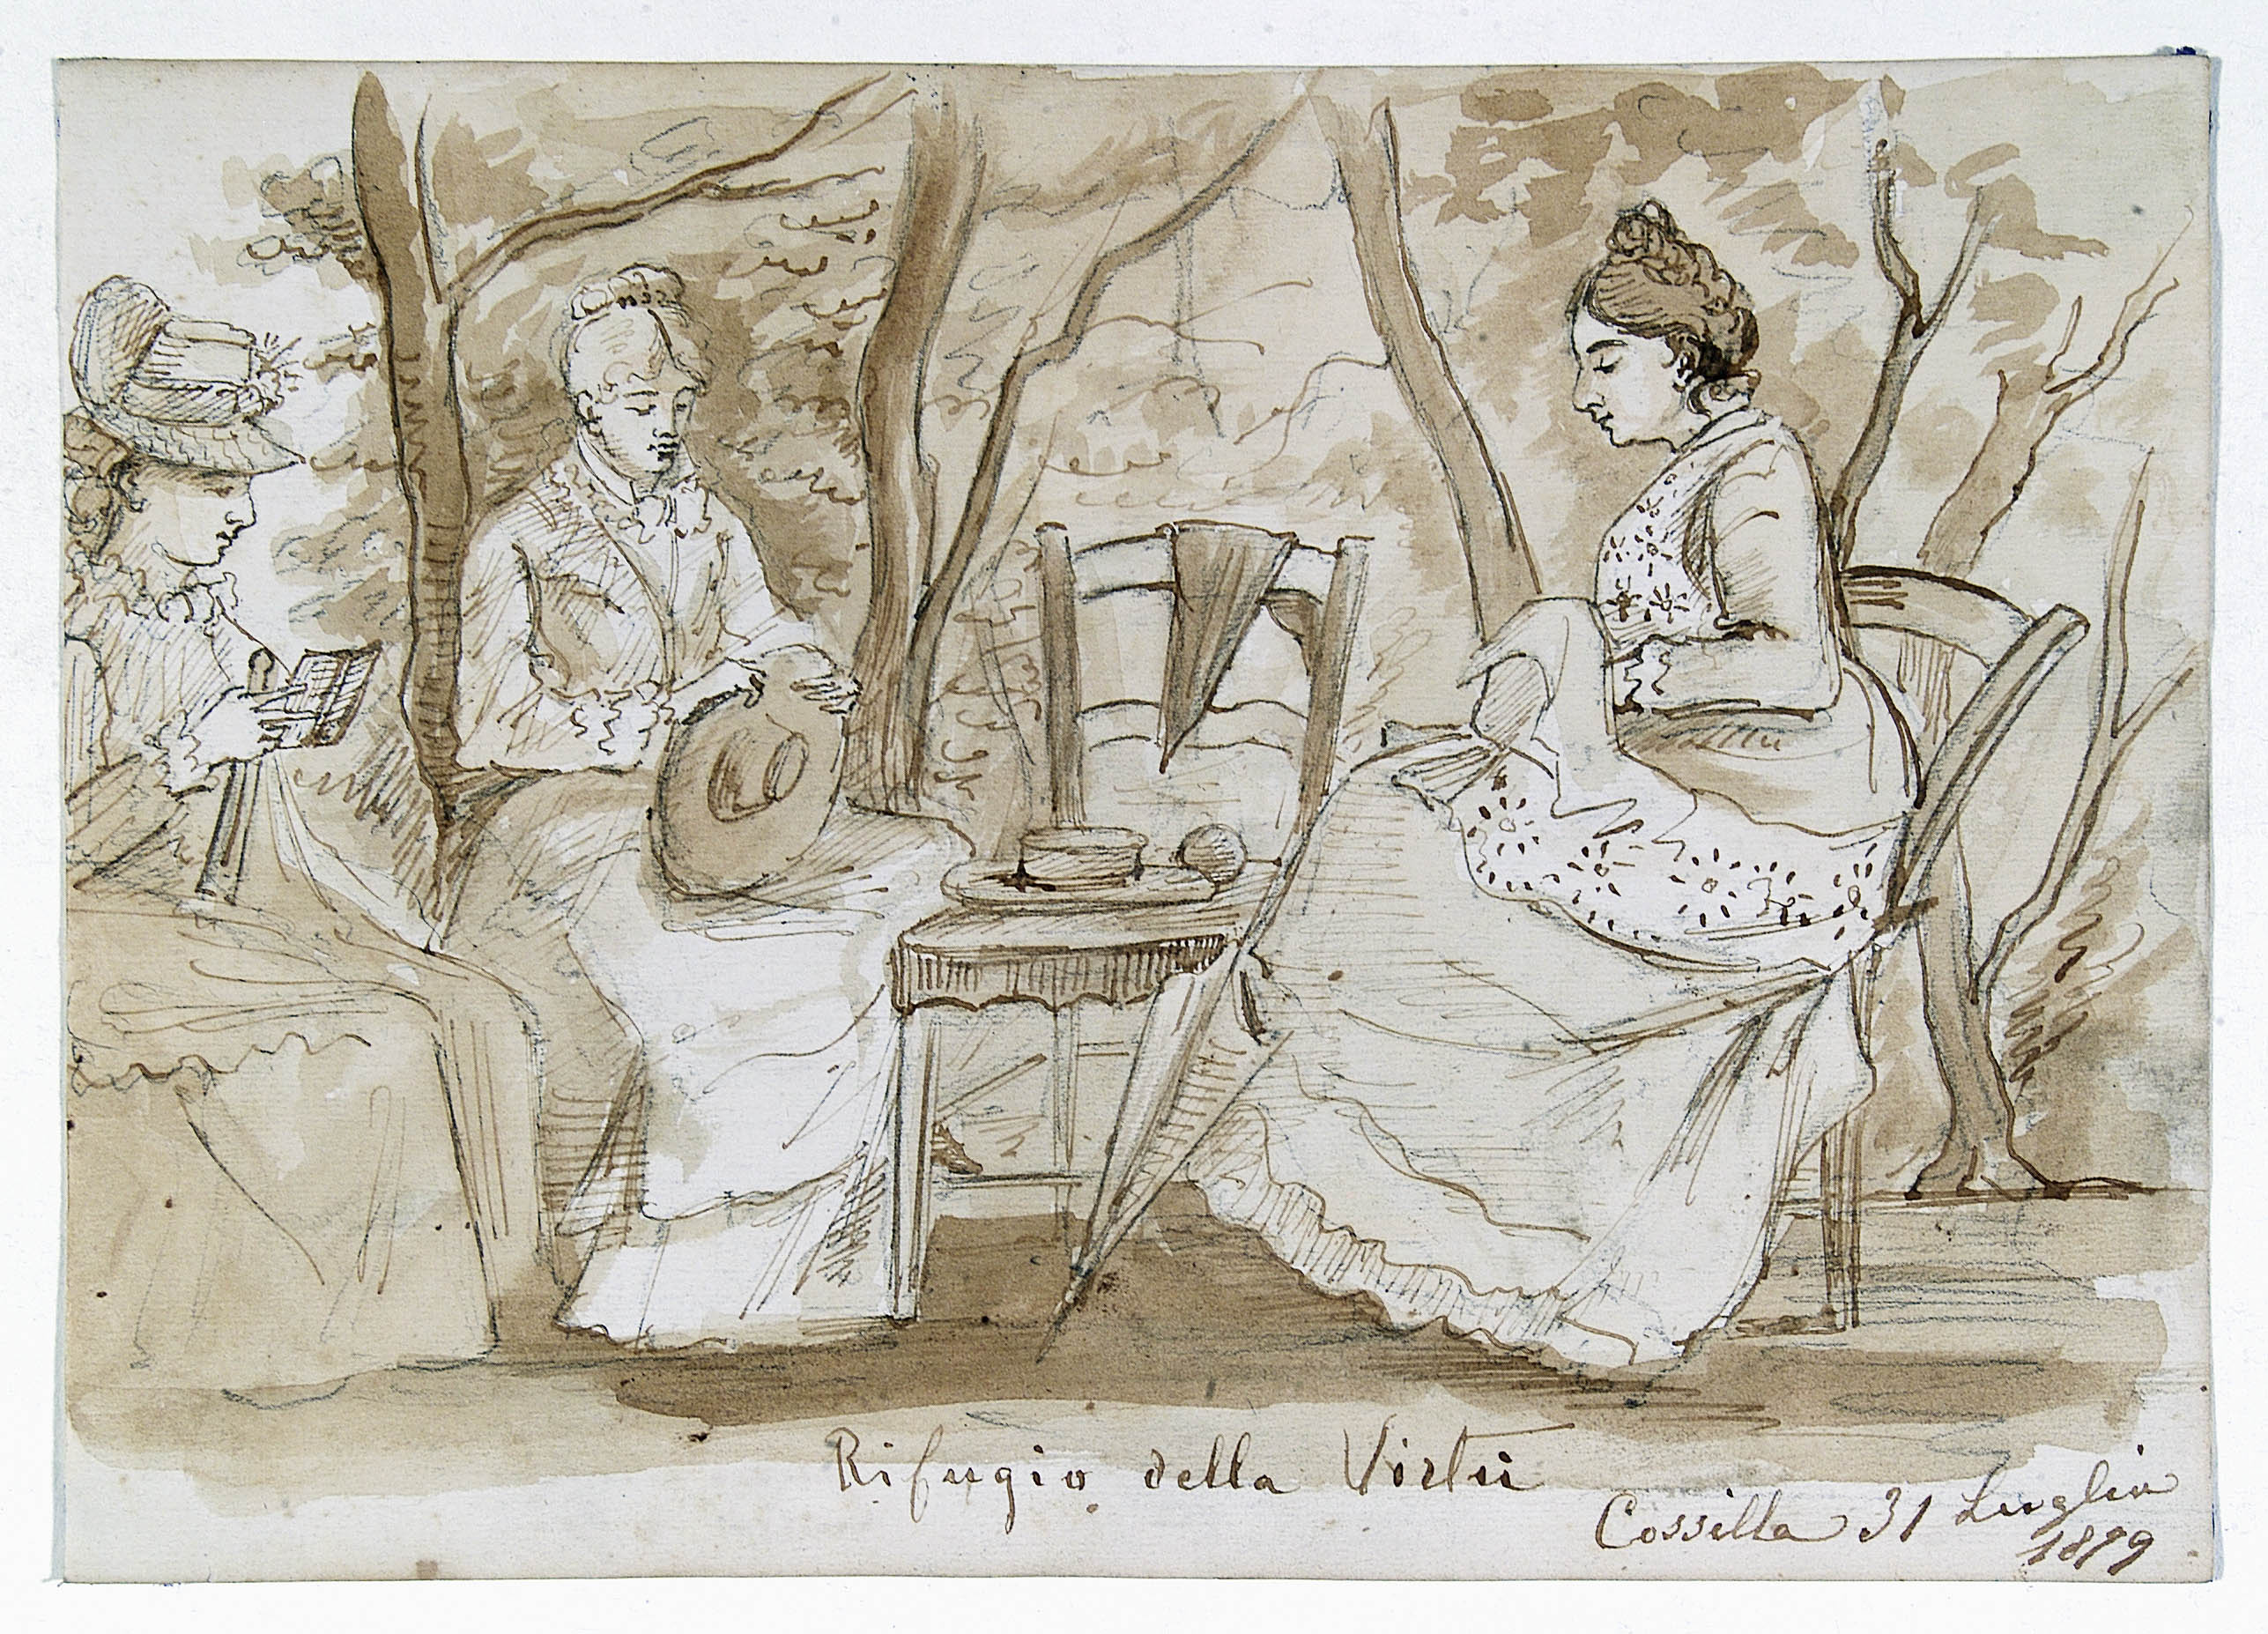 Rifugio della Virtù
Cossilla 31 Luglio
1879